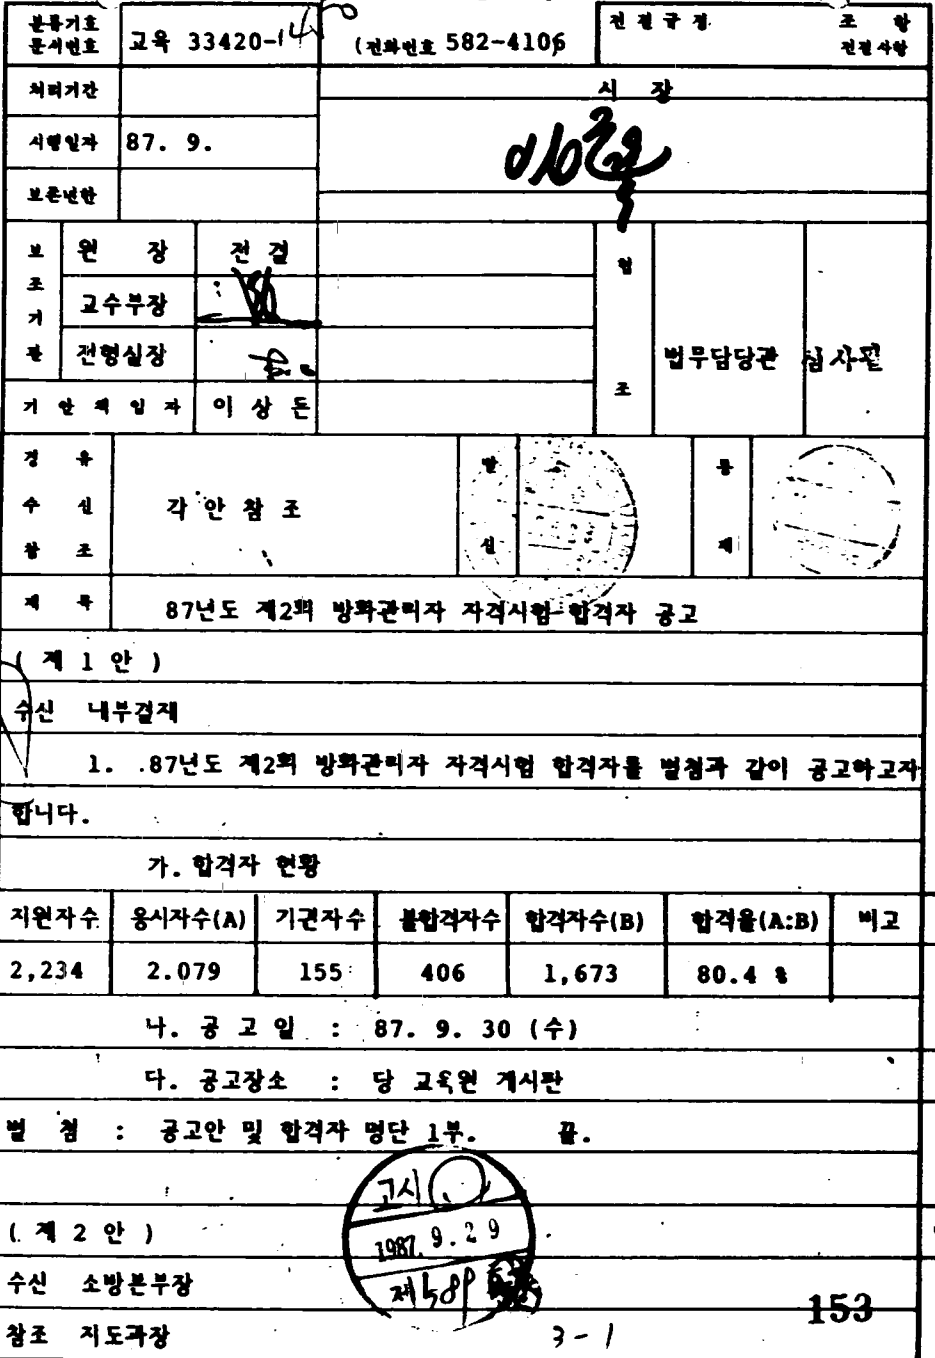 분류기호
문서번호
교육 33420-
(전화번호 582-4106
전결규정
조 항
전결사항
처리기간
시 장
시행일자
87. 9.
보존년한
보조기관
원 장
전 결
교수부장
전형실장
협조
법무담당관
심사필
기안책임자
이상돈
경유
수신
참조
각안참조
발신
통제
제 목
87년도 제2회 방화관리자 자격시험 합격자 공고
(제 1 안)
수신 내부결재
1. 87년도 제2회 방화관리자 자격시험 합격자를 별첨과 같이 공고하고자
합니다.
가. 합격자 현황
지원자수 응시자수(A) 기권자수 불합격자수 합격자수(B) 합격율(A:B) 비고
2,234 2.079 155 406 1,673 80.4 %
나. 공 고 일 : 87. 9. 30 (수)
다. 공고장소 : 당 교육원 게시판
별 첨 : 공고안 및 합격자 명단 1부. 끝.
고시
1987. 9. 29
제589
(제 2 안)
수신 소방본부장
참조 지도과장
3-1
153